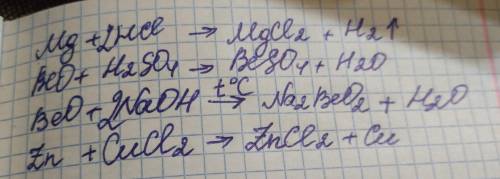 Mg + 2HCl → MgCl2 + H2↑
BeO + H2SO4 → BeSO4 + H2O
BeO + 2NaOH t°C→ Na2BeO2 + H2O
Zn + CuCl2 → ZnCl2 + Cu